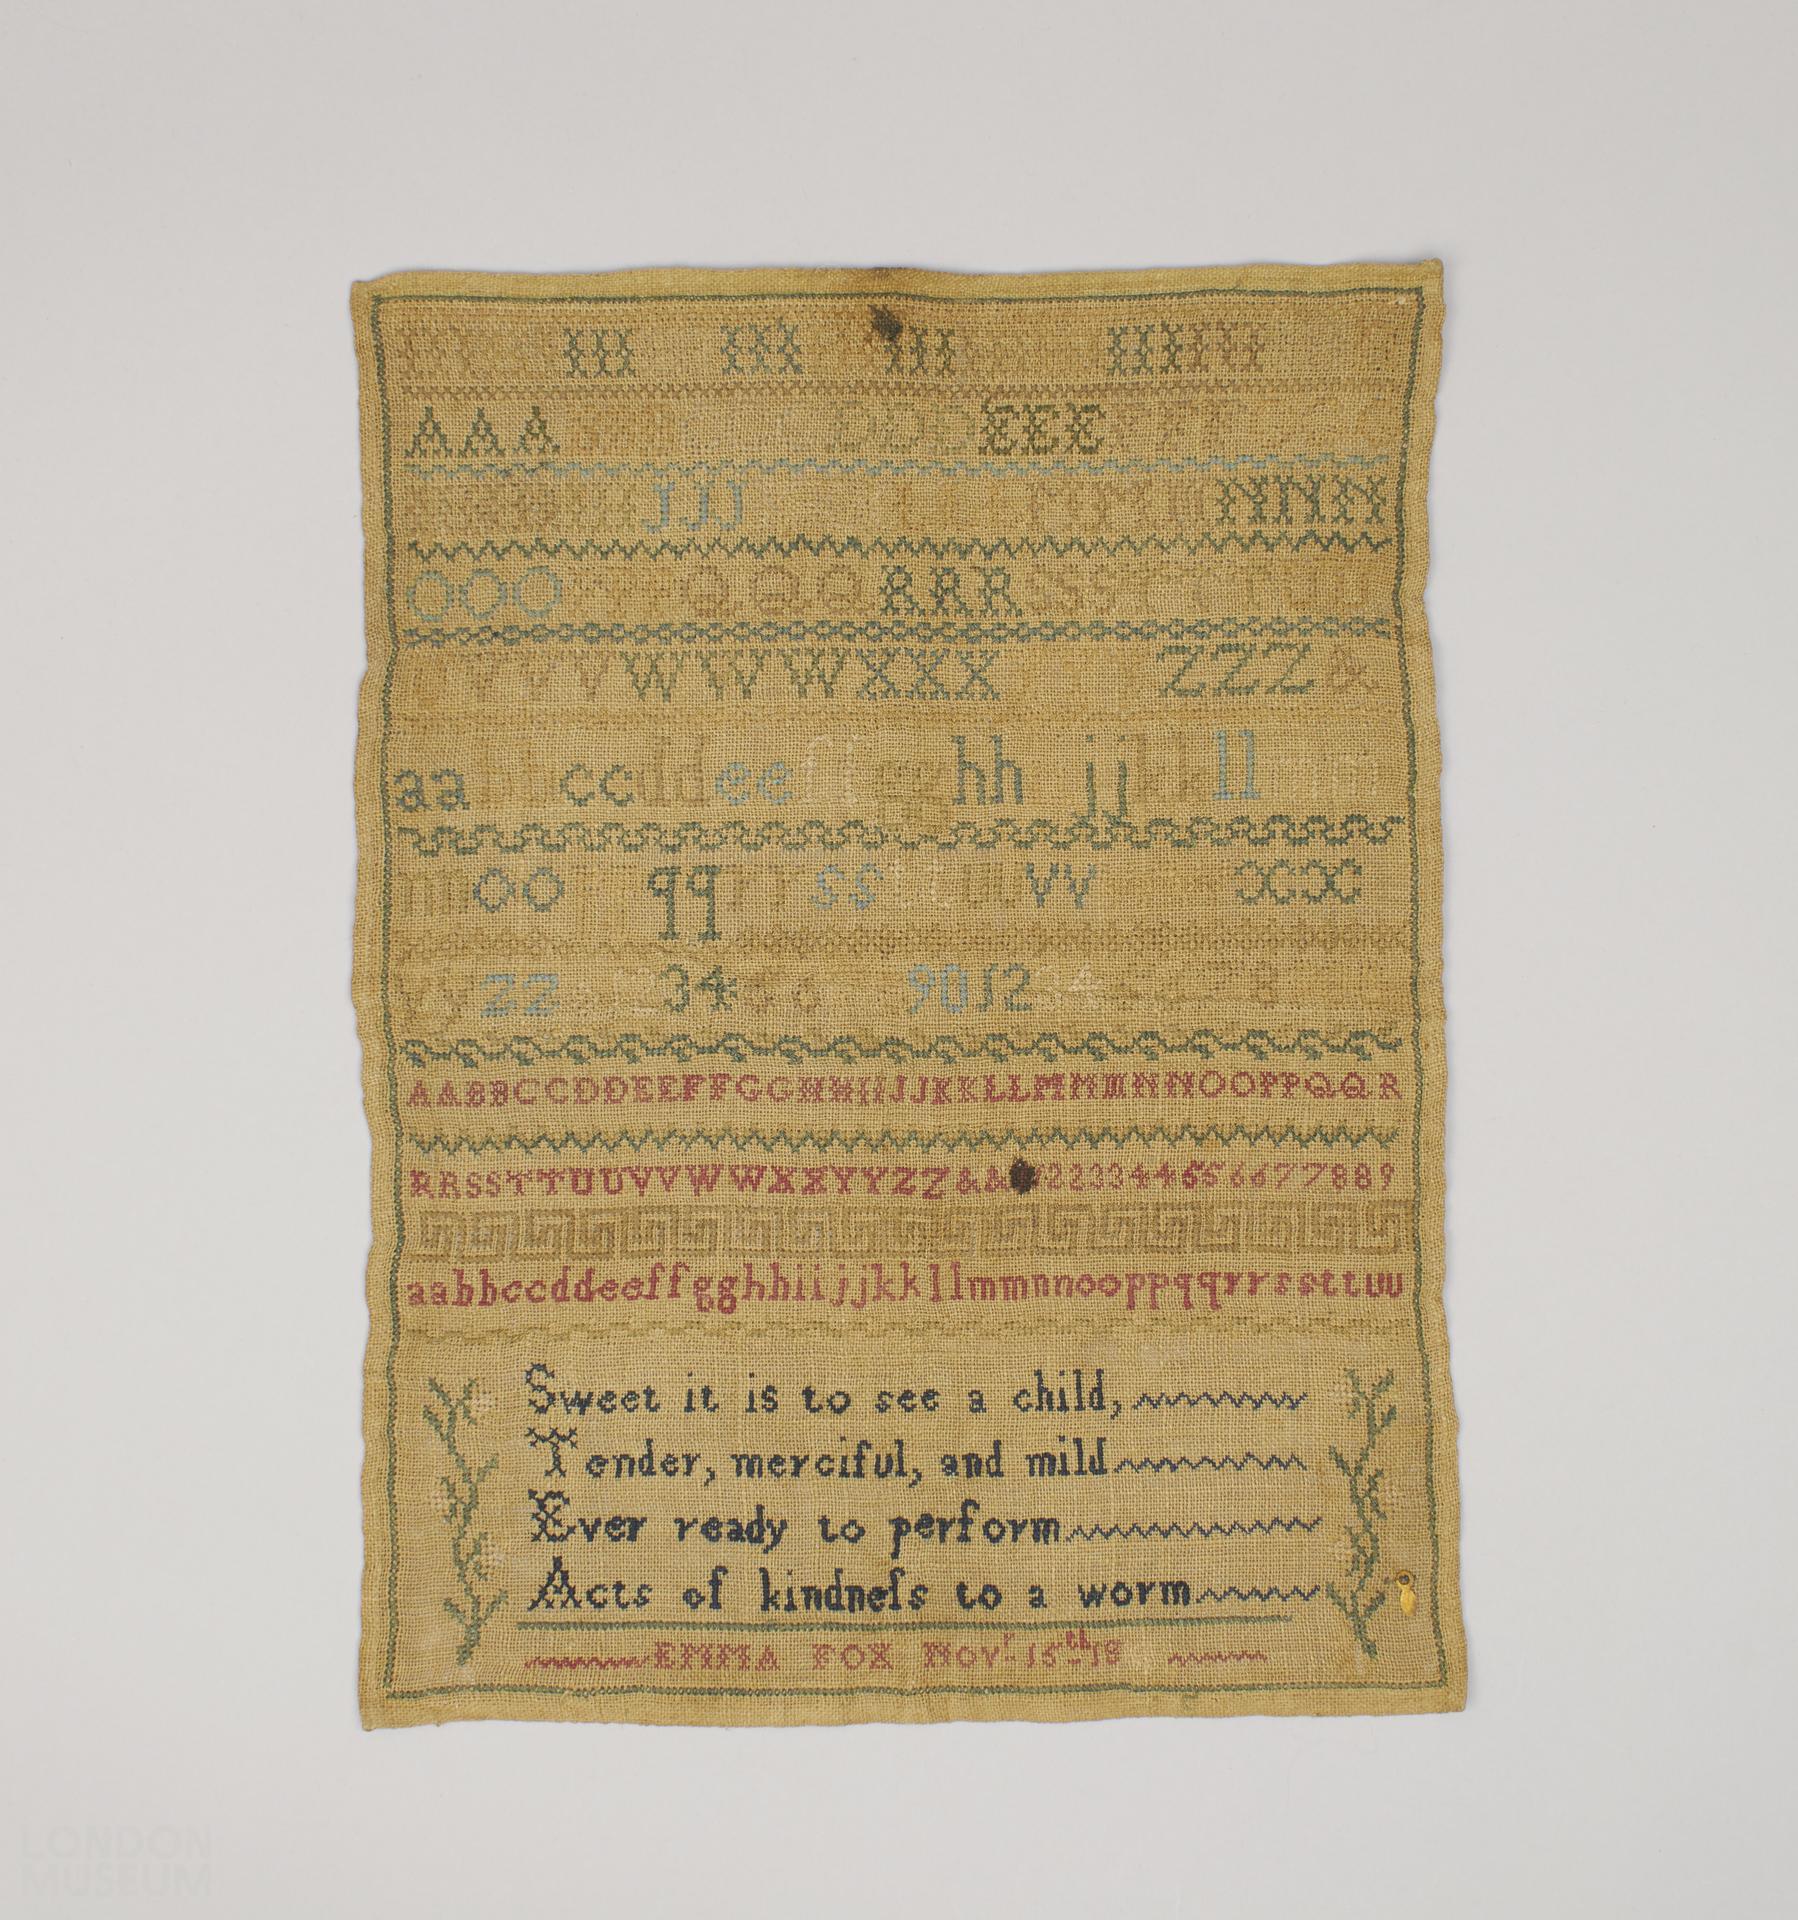 AAA DDDEEE FFF
JJJ NNN
OOO QQQRRRSSS
VVVWWWXXX ZZZ&
aa ccddeeff hh jjkkll
oo qqrrssttuuvv xx
zz 34 90123 4
AABBCCDDEEFFGGHHIIJJKKLLMMMNNOOPPQQR
RRSSTTUUVVWWXXYYZZ&& 223344556677889
aabbccddeeffgghhiijjkkllmmnnooppqqrrssttuu
Sweet it is to see a child,
Tender, merciful, and mild
Ever ready to perform
Acts of kindneſs to a worm
EMMA FOX Novr 15th 18
LONDON
MUSEUM